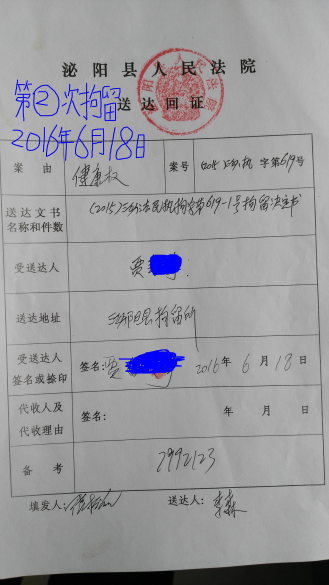 泌阳县人民法院
第②次拘留
送达回证
2016年6月18日
案由 健康权 案号 (2015) 字第619号
送达文书名称和件数 第619-1号拘留决定书
受送达人 贾
送达地址 拘留所
受送达人签名或捺印 签名:贾 2016年6月18日
代收人及代收理由 签名: 年 月 日
备考 7992123
填发人: 送达人:李森